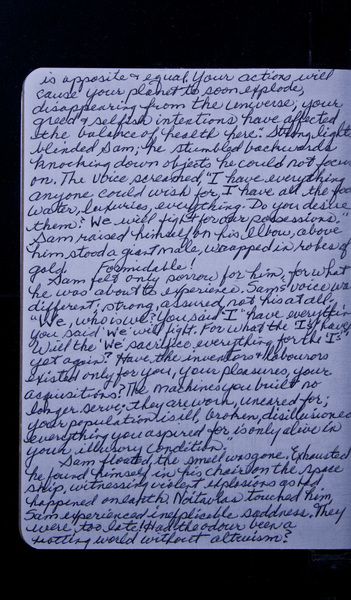 is opposite & equal. Your actions will
cause your planet to soon explode,
disappearing from the universe; your
greed & selfish intentions have affected
the balance of health here." Strong light
blinded Sam; he stumbled backwards
knocking down objects he could not focus
on. The voice screamed "I have everything
anyone could wish for, I have all the food
water, luxuries, everything. Do you desire
them? We will fight for our possessions."
Sam raised himself on his elbow, above
him stood a giant male, wrapped in robes of
gold. Formidable!
Sam felt only sorrow for him, for what
he was about to experience. Sam's voice was
different, strong, assured, not his at all.
"We, who is we? You said "I" have everything
you said We will fight. For what the "I's" have?
Will the 'We' sacrifice everything for the "I's"
yet again? Have the inventors & labourors
existed only for you, your pleasures, your
acquisitions? The machines you built no
longer serve; they are worn, uncared for;
your population is ill, broken, disillusioned
everything you aspired for is only alive in
your illusory condition."
Sam floated, the smell was gone. Exhausted
he found himself in his chair on the space
ship, witnessing violent explosions as had
happened on earth. touched him,
Sam experienced inexplicable saddness. They
were too late! Had the odour been a
rotting world without altruism?